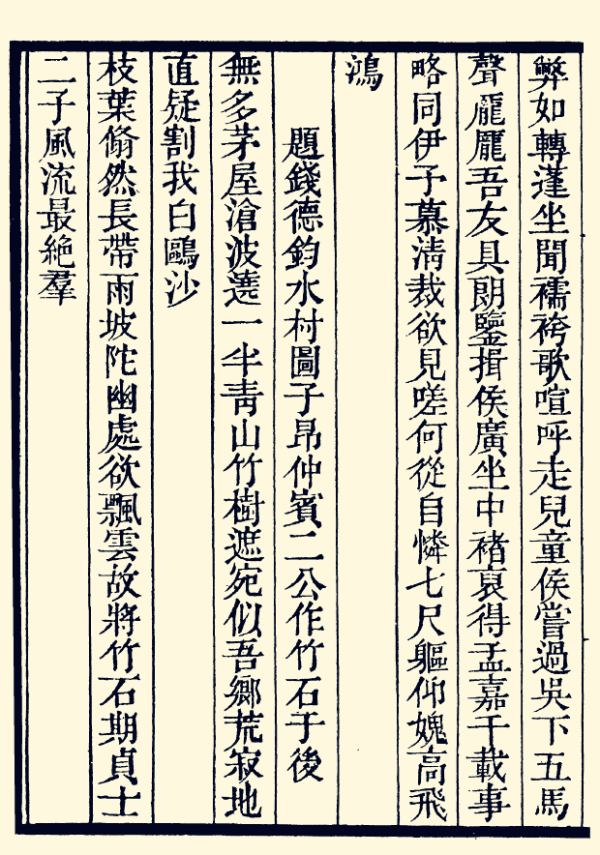 弊如轉蓬坐聞襦袴歌喧呼走兒童侯嘗過吳下五馬
聲龎龎吾友具朗鑒揖侯廣坐中褚裒得孟嘉千載事
略同伊予慕清裁欲見嗟何從自憐七尺軀仰媿高飛
鴻
題錢德鈞水村圖子昂仲賓二公作竹石于後
無多茅屋滄波遶一半靑山竹樹遮宛似吾鄉荒寂地
直疑割我白鷗沙
枝葉翛然長帶雨坡陀幽處欲飄雲故將竹石期貞士
二子風流最絶羣